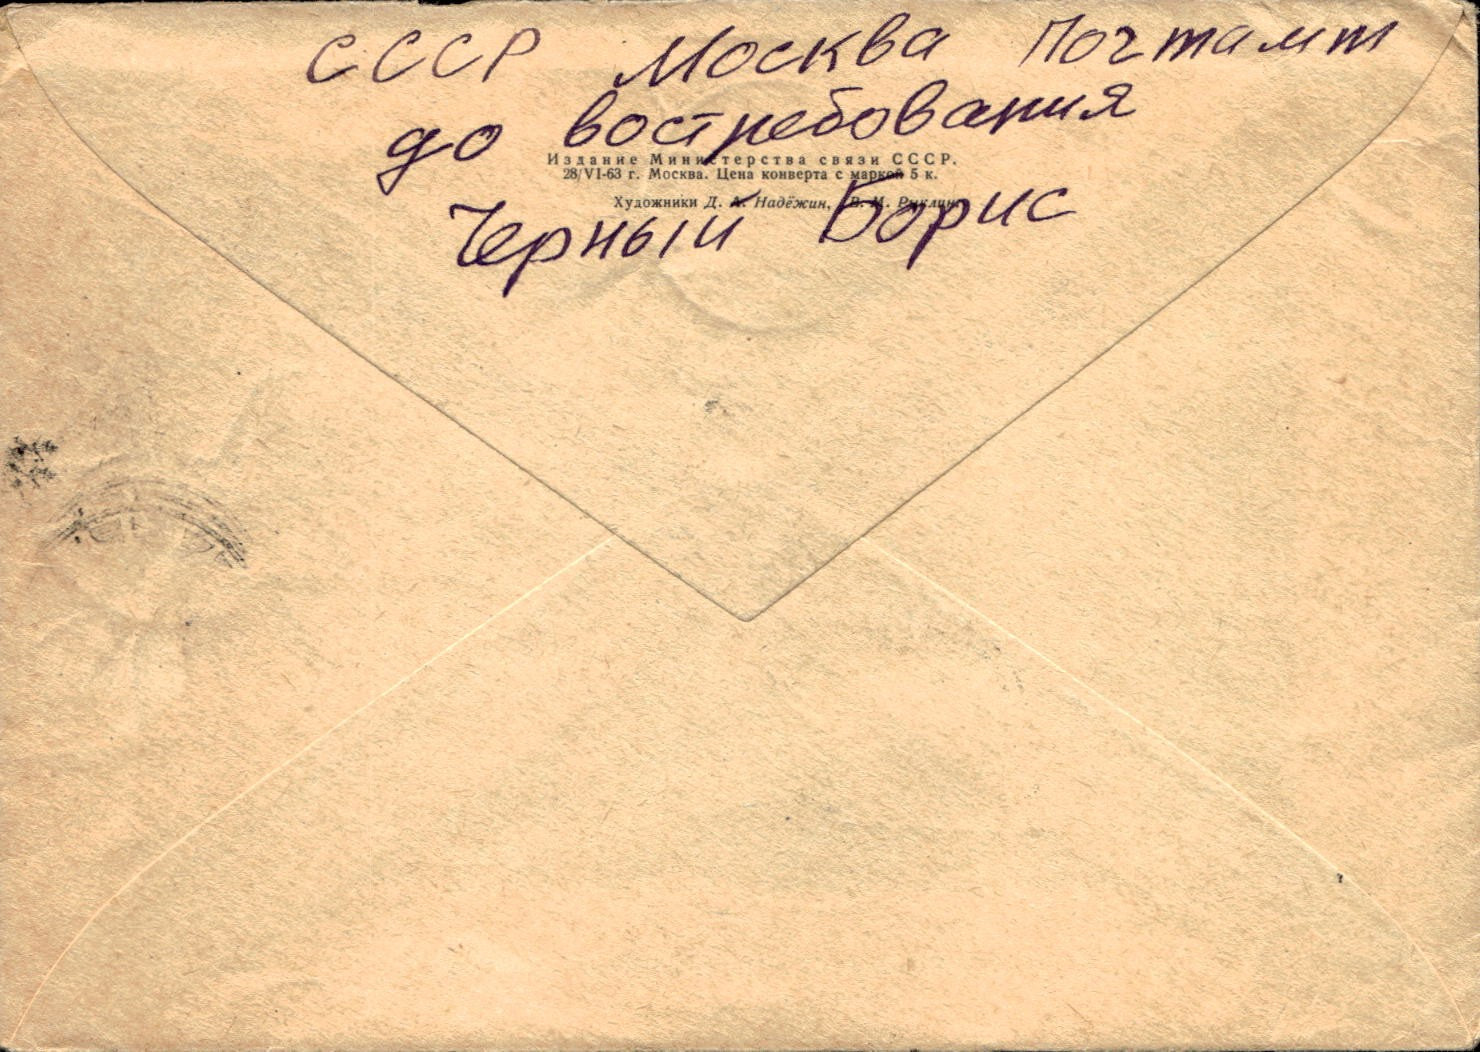 СССР Москва Почтамт
до востребования
Издание Министерства связи СССР.
28/VI-63 г. Москва. Цена конверта с маркой 5 к.
Художники Д. А. Надёжин, В. М. Рыклин.
Черный Борис